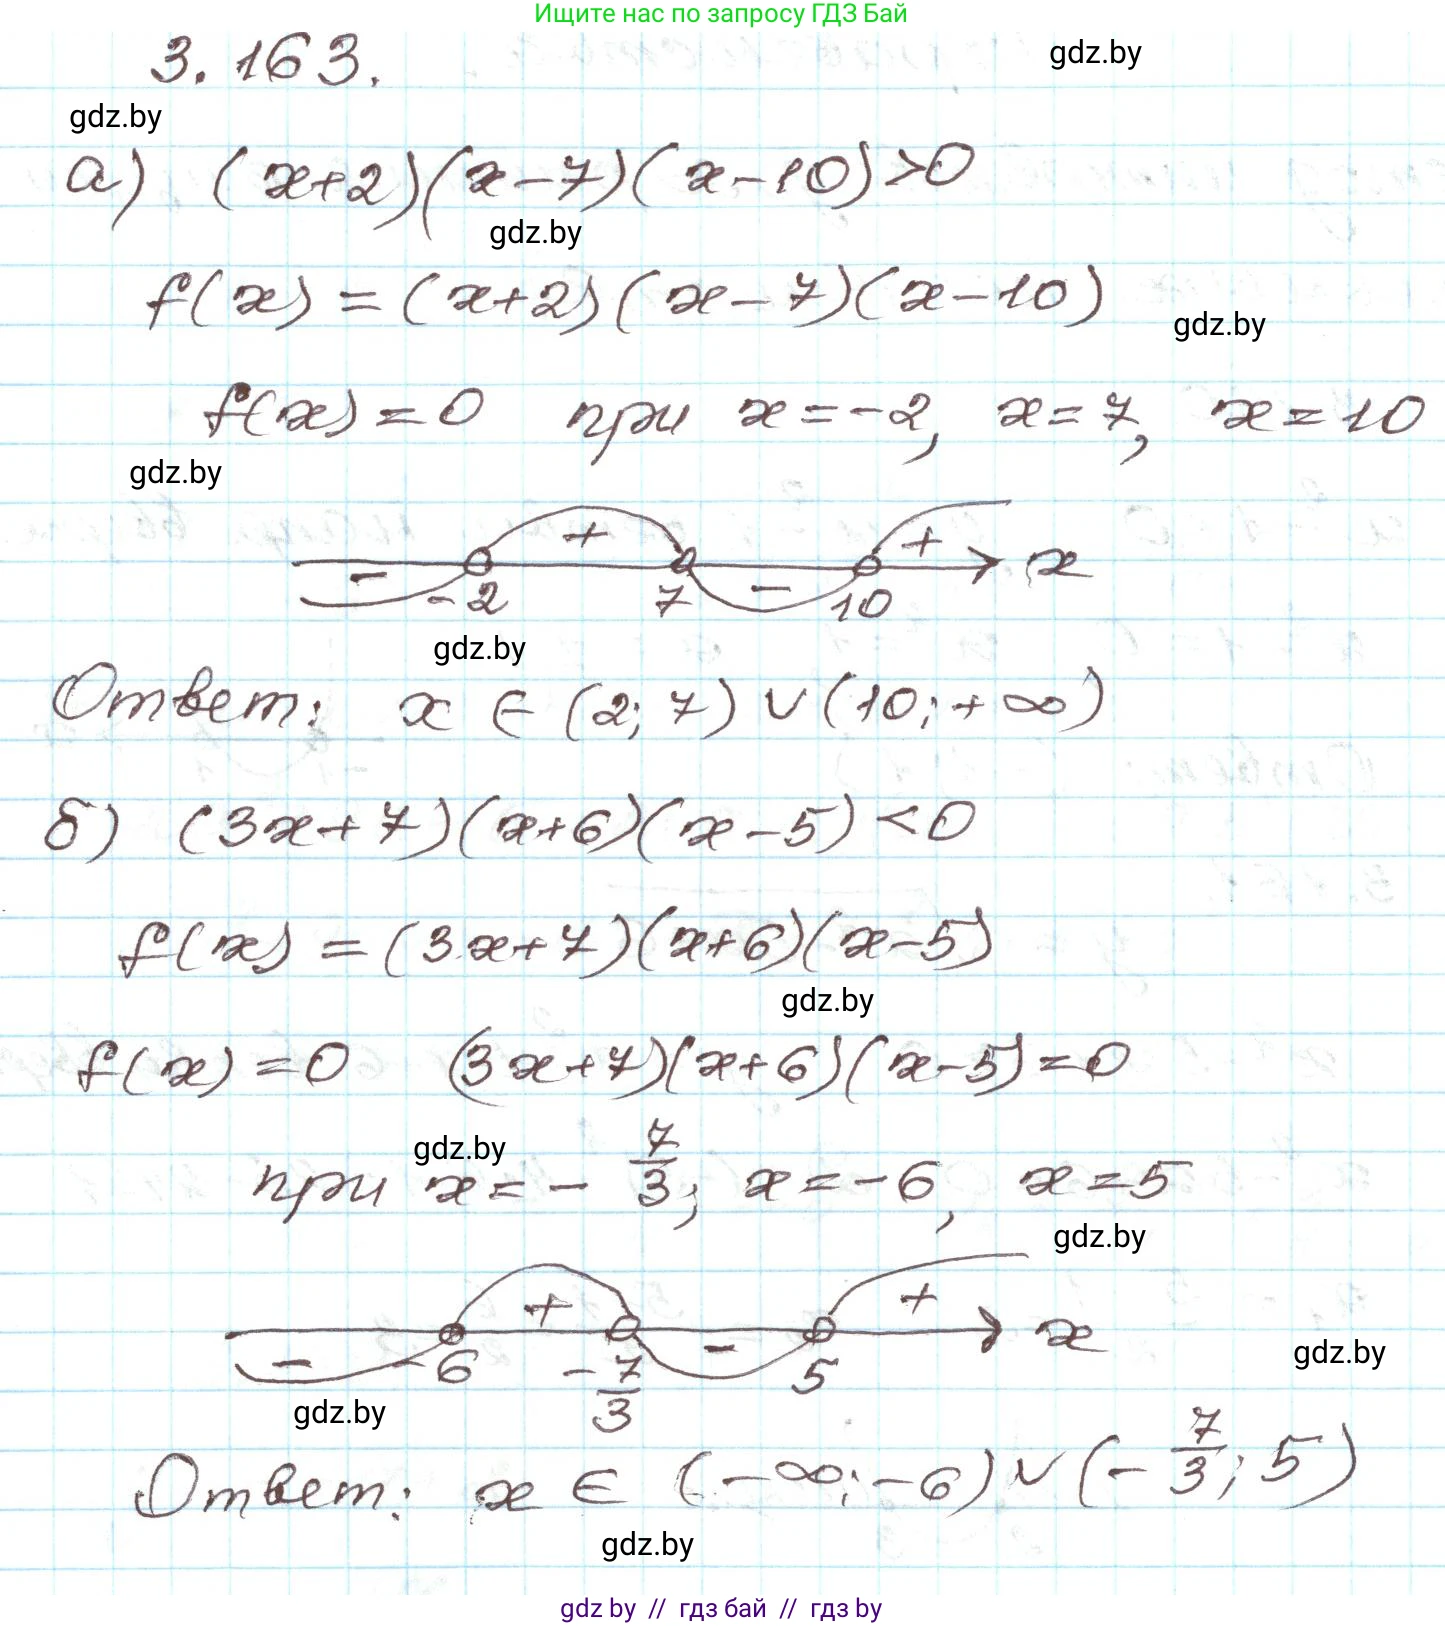 Ищите нас по запросу ГДЗ Бай
3.163.
gdz.by
gdz.by
а) (x+2)(x-7)(x-10)>0
gdz.by
f(x) = (x+2)(x-7)(x-10)
gdz.by
f(x)=0 при x=-2, x=7, x=10
gdz.by
- + - + x
-2 7 10
gdz.by
Ответ: x ∈ (2; 7) ∪ (10; +∞)
б) (3x+7)(x+6)(x-5)<0
f(x) = (3x+7)(x+6)(x-5)
gdz.by
f(x)=0 (3x+7)(x+6)(x-5)=0
gdz.by
при x = -7/3; x=-6, x=5
gdz.by
- + - + x
-6 -7/3 5
gdz.by
gdz.by
Ответ: x ∈ (-∞; -6) ∪ (-7/3; 5)
gdz.by
gdz by // гдз бай // гдз by